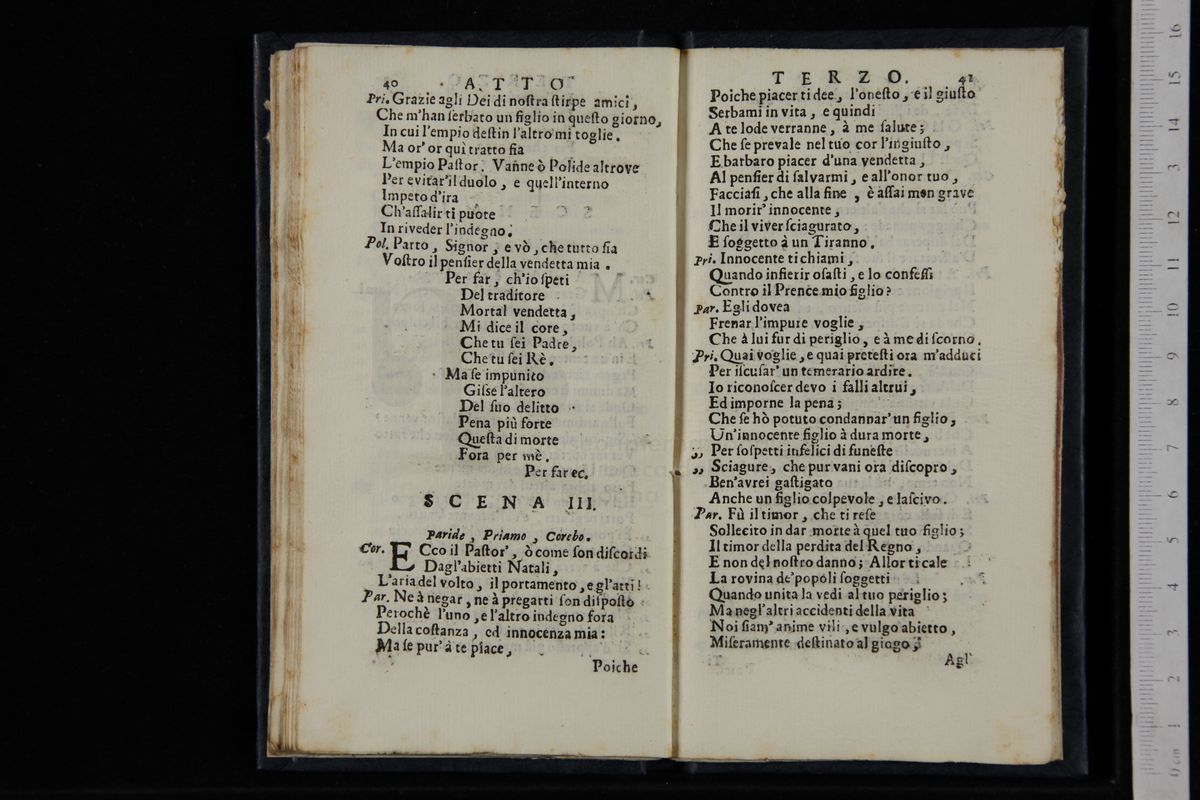 40 ATTO
Pri. Grazie agli Dei di noſtra ſtirpe amici,
Che m'han ſerbato un figlio in queſto giorno,
In cui l'empio deſtin l'altro mi toglie.
Ma or' or quì tratto ſia
L'empio Paſtor. Vanne ò Polide altrove
Per evitar'il duolo, e quell'interno
Impeto d'ira
Ch'aſſalir ti puote
In riveder l'indegno.
Pol. Parto, Signor, e vò, che tutto ſia
Voſtro il penſier della vendetta mia.
Per far, ch'io ſpeti
Del traditore
Mortal vendetta,
Mi dice il core,
Che tu ſei Padre,
Che tu ſei Rè.
Ma ſe impunito
Giſse l'altero
Del ſuo delitto
Pena più forte
Queſta di morte
Fora per mè.
Per far ec.
SCENA III.
Paride, Priamo, Corebo.
Cor. ECco il Paſtor', ò come ſon diſcordi
Dagl'abietti Natali,
L'aria del volto, il portamento, e gl'atti!
Par. Ne à negar, ne à pregarti ſon diſpoſto
Perochè l'uno, e l'altro indegno fora
Della coſtanza, ed innocenza mia:
Ma ſe pur' à te piace,
Poiche
TERZO. 41
Poiche piacer ti dee, l'oneſto, e il giuſto
Serbami in vita, e quindi
A te lode verranne, à me ſalute;
Che ſe prevale nel tuo cor l'ingiuſto,
E barbaro piacer d'una vendetta,
Al penſier di ſalvarmi, e all'onor tuo,
Facciaſi, che alla fine, è aſſai men grave
Il morir' innocente,
Che il viver ſciagurato,
E ſoggetto à un Tiranno.
Pri. Innocente ti chiami,
Quando infierir oſaſti, e lo confeſſi
Contro il Prence mio figlio?
Par. Egli dovea
Frenar l'impure voglie,
Che à lui fur di periglio, e à me di ſcorno.
Pri. Quai voglie, e quai preteſti ora m'adduci
Per iſcuſar' un temerario ardire.
Io riconoſcer devo i falli altrui,
Ed imporne la pena;
Che ſe hò potuto condannar' un figlio,
Un'innocente figlio à dura morte,
,, Per ſoſpetti infelici di funeſte
,, Sciagure, che pur vani ora diſcopro,
Ben'avrei gaſtigato
Anche un figlio colpevole, e laſcivo.
Par. Fù il timor, che ti reſe
Sollecito in dar morte à quel tuo figlio;
Il timor della perdita del Regno,
E non del noſtro danno; Allor ti cale
La rovina de'popoli ſoggetti
Quando unita la vedi al tuo periglio;
Ma negl'altri accidenti della vita
Noi ſiam' anime vili, e vulgo abietto,
Miſeramente deſtinato al giogo;
Agl'